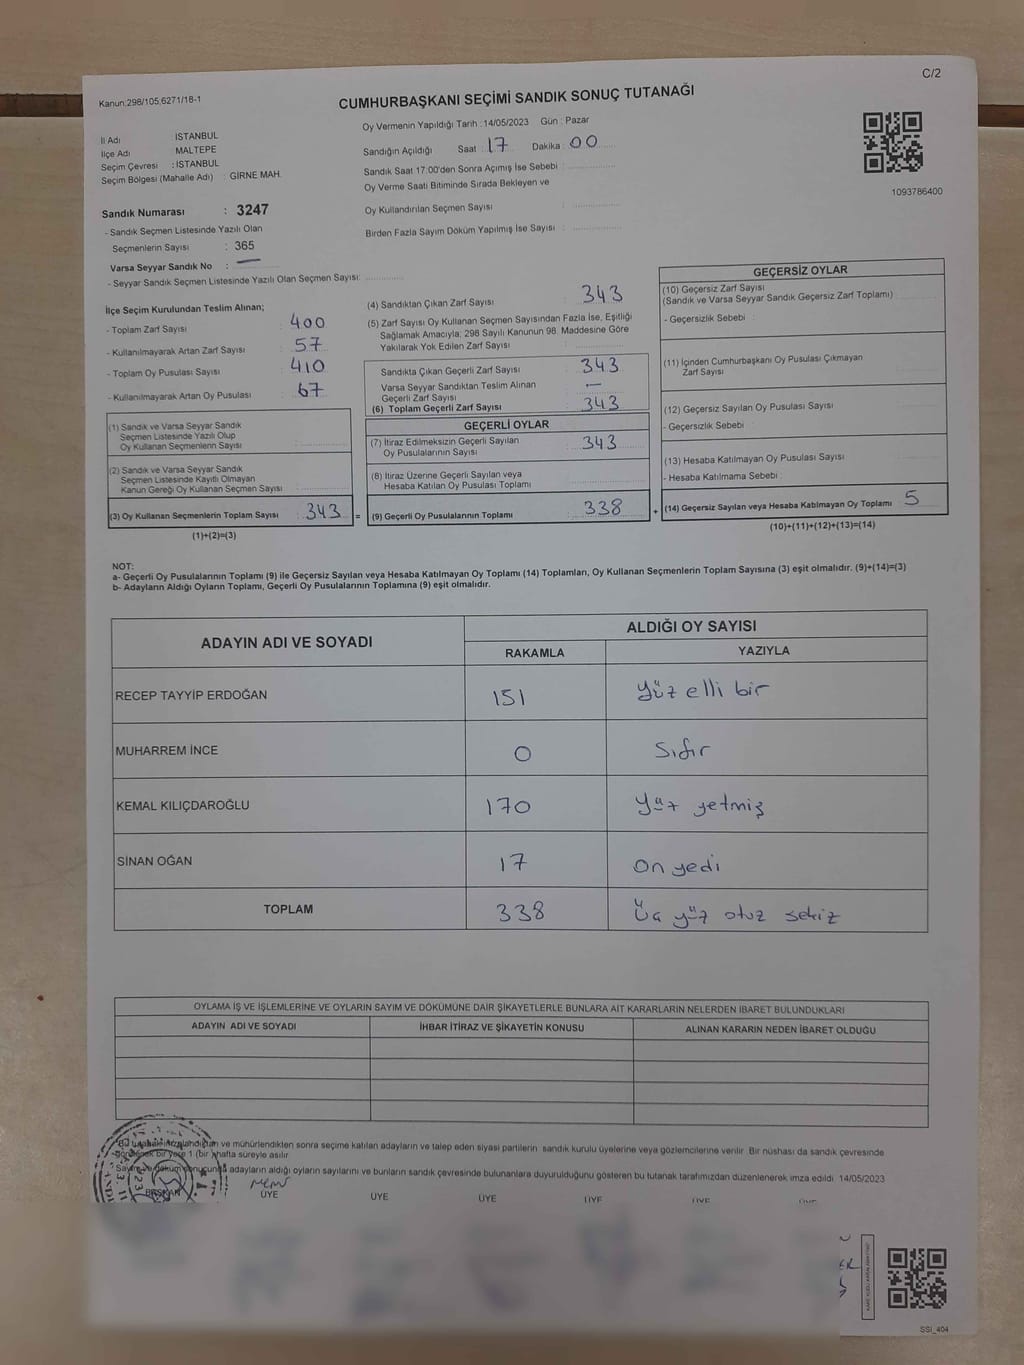 C/2
Kanun:298/105,6271/18-1
CUMHURBAŞKANI SEÇİMİ SANDIK SONUÇ TUTANAĞI
Oy Vermenin Yapıldığı Tarih : 14/05/2023 Gün : Pazar
İl Adı İSTANBUL
İlçe Adı MALTEPE
Seçim Çevresi : İSTANBUL
Seçim Bölgesi (Mahalle Adı) : GİRNE MAH.
Sandığın Açıldığı Saat : 17 Dakika : 00
Sandık Saat 17:00'den Sonra Açımış İse Sebebi :
Oy Verme Saati Bitiminde Sırada Bekleyen ve
Oy Kullandırılan Seçmen Sayısı :
Birden Fazla Sayım Döküm Yapılmış İse Sayısı :
1093786400
Sandık Numarası : 3247
- Sandık Seçmen Listesinde Yazılı Olan
Seçmenlerin Sayısı : 365
Varsa Seyyar Sandık No : —
- Seyyar Sandık Seçmen Listesinde Yazılı Olan Seçmen Sayısı:
İlçe Seçim Kurulundan Teslim Alınan;
- Toplam Zarf Sayısı : 400
- Kullanılmayarak Artan Zarf Sayısı : 57
- Toplam Oy Pusulası Sayısı : 410
- Kullanılmayarak Artan Oy Pusulası : 67
(1) Sandık ve Varsa Seyyar Sandık
Seçmen Listesinde Yazılı Olup
Oy Kullanan Seçmenlerin Sayısı :
(2) Sandık ve Varsa Seyyar Sandık
Seçmen Listesinde Kayıtlı Olmayan
Kanun Gereği Oy Kullanan Seçmen Sayısı :
(3) Oy Kullanan Seçmenlerin Toplam Sayısı : 343 =
(1)+(2)=(3)
(4) Sandıktan Çıkan Zarf Sayısı : 343
(5) Zarf Sayısı Oy Kullanan Seçmen Sayısından Fazla İse, Eşitliği
Sağlamak Amacıyla; 298 Sayılı Kanunun 98. Maddesine Göre
Yakılarak Yok Edilen Zarf Sayısı :
Sandıkta Çıkan Geçerli Zarf Sayısı : 343
Varsa Seyyar Sandıktan Teslim Alınan
Geçerli Zarf Sayısı : —
(6) Toplam Geçerli Zarf Sayısı : 343
GEÇERLİ OYLAR
(7) İtiraz Edilmeksizin Geçerli Sayılan
Oy Pusulalarının Sayısı : 343
(8) İtiraz Üzerine Geçerli Sayılan veya
Hesaba Katılan Oy Pusulası Toplamı :
(9) Geçerli Oy Pusulalarının Toplamı : 338 +
GEÇERSİZ OYLAR
(10) Geçersiz Zarf Sayısı
(Sandık ve Varsa Seyyar Sandık Geçersiz Zarf Toplamı) :
- Geçersizlik Sebebi :
(11) İçinden Cumhurbaşkanı Oy Pusulası Çıkmayan
Zarf Sayısı :
(12) Geçersiz Sayılan Oy Pusulası Sayısı :
- Geçersizlik Sebebi :
(13) Hesaba Katılmayan Oy Pusulası Sayısı :
- Hesaba Katılmama Sebebi :
(14) Geçersiz Sayılan veya Hesaba Katılmayan Oy Toplamı : 5
(10)+(11)+(12)+(13)=(14)
NOT:
a- Geçerli Oy Pusulalarının Toplamı (9) ile Geçersiz Sayılan veya Hesaba Katılmayan Oy Toplamı (14) Toplamları, Oy Kullanan Seçmenlerin Toplam Sayısına (3) eşit olmalıdır. (9)+(14)=(3)
b- Adayların Aldığı Oyların Toplamı, Geçerli Oy Pusulalarının Toplamına (9) eşit olmalıdır.
ADAYIN ADI VE SOYADI ALDIĞI OY SAYISI
RAKAMLA YAZIYLA
RECEP TAYYİP ERDOĞAN 151 Yüz elli bir
MUHARREM İNCE 0 Sıfır
KEMAL KILIÇDAROĞLU 170 Yüz yetmiş
SİNAN OĞAN 17 On yedi
TOPLAM 338 Üç yüz otuz sekiz
OYLAMA İŞ VE İŞLEMLERİNE VE OYLARIN SAYIM VE DÖKÜMÜNE DAİR ŞİKAYETLERLE BUNLARA AİT KARARLARIN NELERDEN İBARET BULUNDUKLARI
ADAYIN ADI VE SOYADI İHBAR İTİRAZ VE ŞİKAYETİN KONUSU ALINAN KARARIN NEDEN İBARET OLDUĞU
ve mühürlendikten sonra seçime katılan adayların ve talep eden siyasi partilerin sandık kurulu üyelerine veya gözlemcilerine verilir. Bir nüshası da sandık çevresinde
bir yere 1 (bir) hafta süreyle asılır.
adayların aldığı oyların sayılarını ve bunların sandık çevresinde bulunanlara duyurulduğunu gösteren bu tutanak tarafımızdan düzenlenerek imza edildi. 14/05/2023
BAŞKAN ÜYE ÜYE ÜYE ÜYE ÜYE
SSI_404